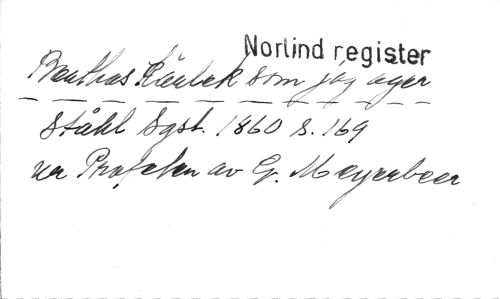 Norlind register
Berthas kärlek som jag äger
Ståhl Sgst. 1860 s. 169
ur Profeten av G. Meyerbeer